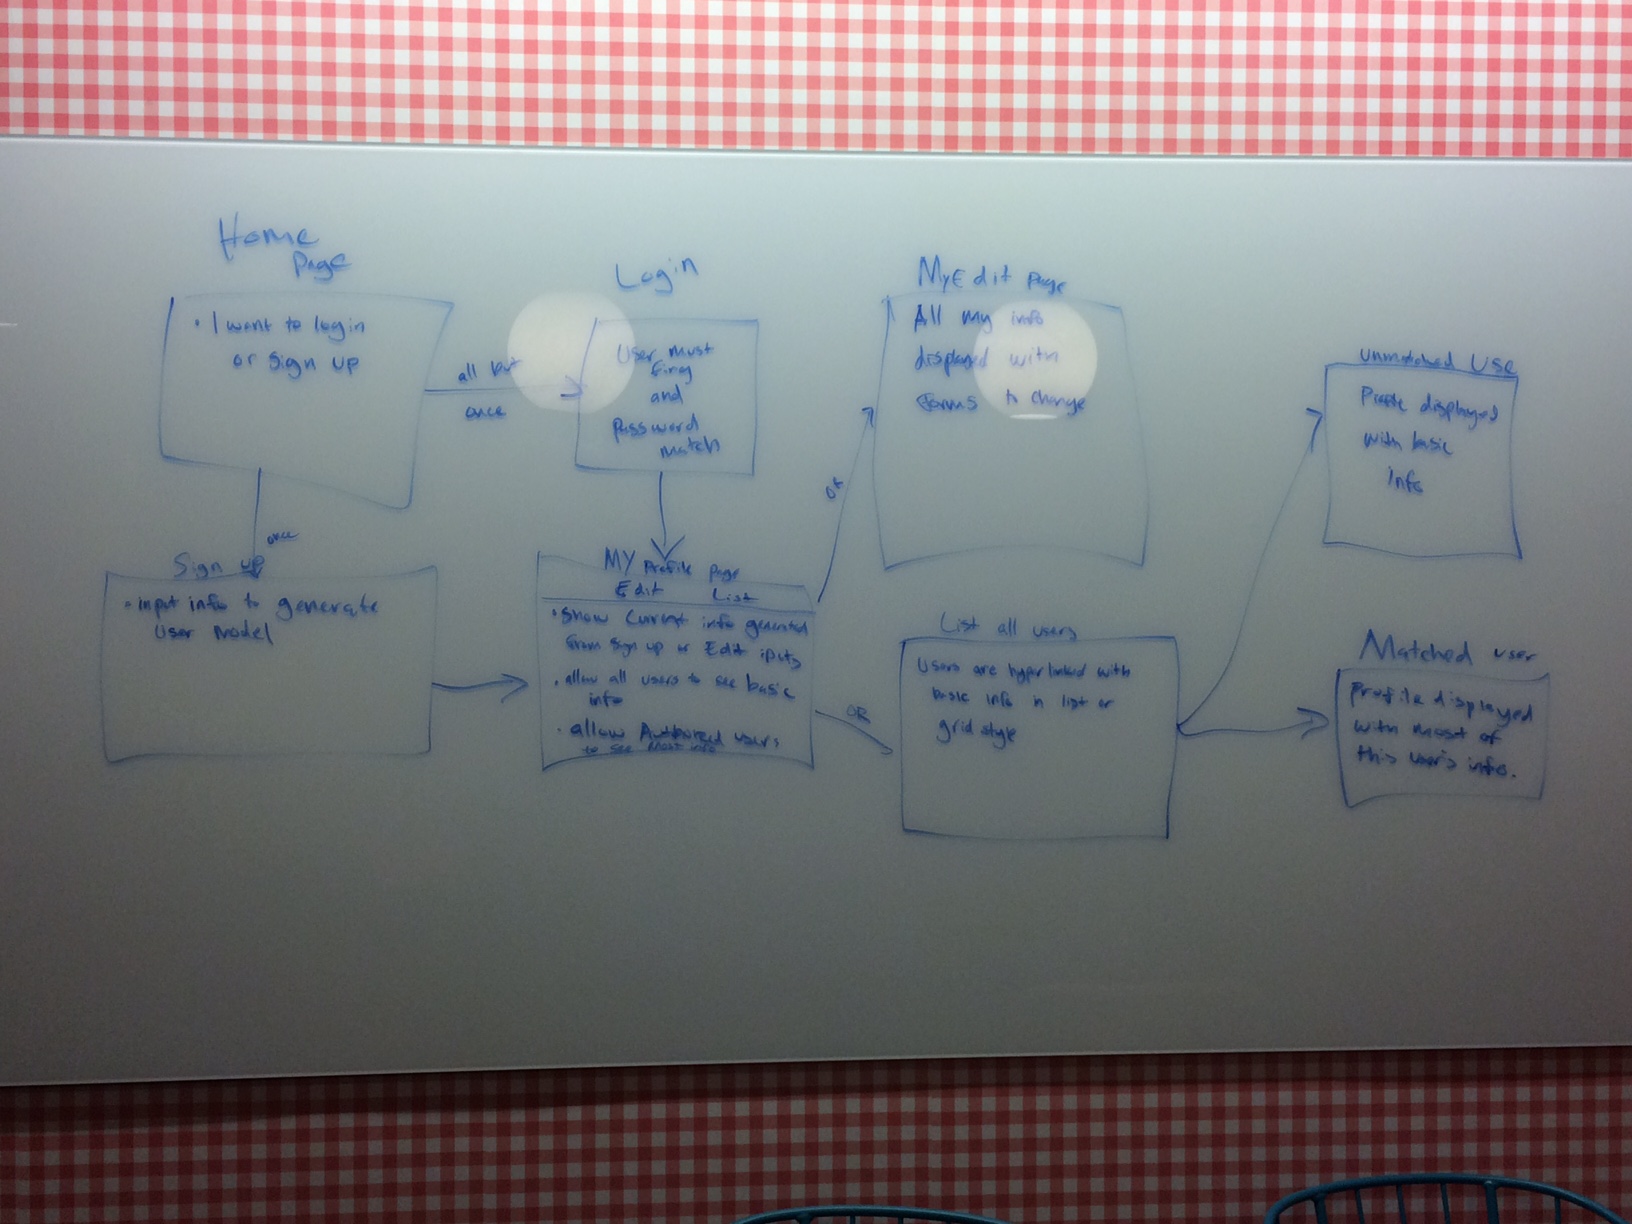 Home
Page
• I want to login
or sign up
all but
once
once
Sign up
• input info to generate
User model
Login
User must
and
Password
match
MY Profile page
Edit List
• Show Current info generated
from sign up or Edit iputs
• allow all users to see basic
info
• allow Authorized users
to see most info
OR
OR
MyEdit page
All my info
displayed with
forms to change
List all users
Users are hyperlinked with
basic info in list or
grid style
Unmatched Use
displayed
with basic
Info
Matched user
Profile displayed
with most of
this user's info.